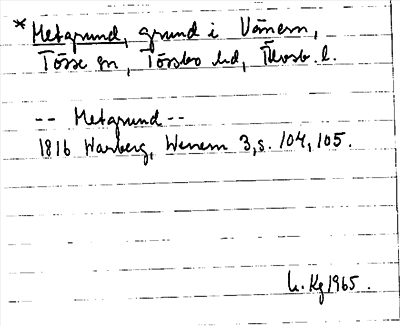 * Metgrund, grund i Vänern,
Tösse sn, Tössbo hd, Älvsb. l.
-- Metgrund --
1816 Warberg, Wenern 3, s. 104, 105.
Kg 1965.